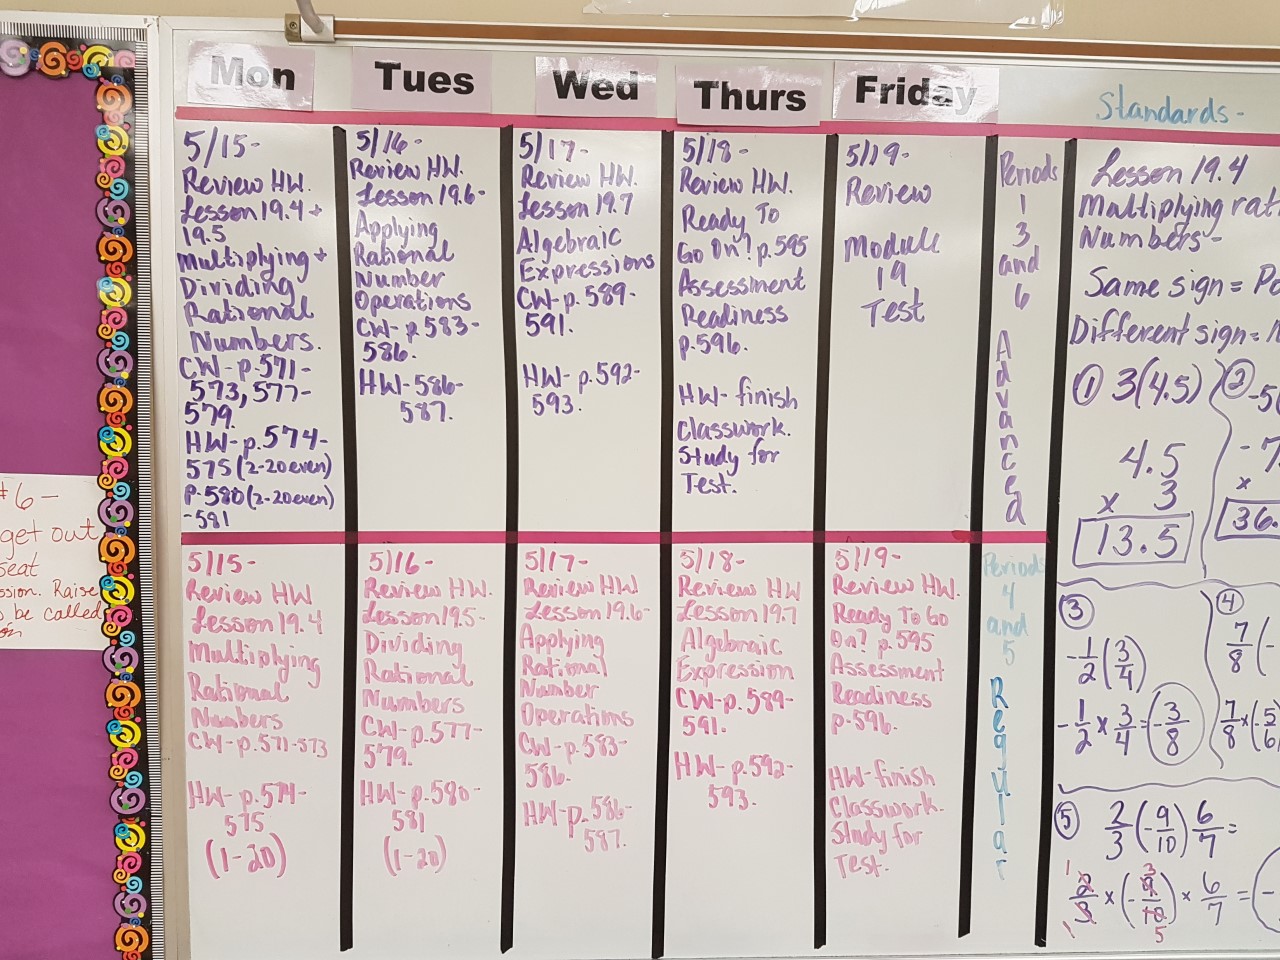 Mon
Tues
Wed
Thurs
Friday
Standards-
5/15-
Review HW.
Lesson 19.4 +
19.5
Multiplying +
Dividing
Rational
Numbers.
CW-p.571-
573, 577-
579.
HW-p.574-
575 (2-20 even)
p.580 (2-20 even)
-581
5/16-
Review HW.
Lesson 19.6-
Applying
Rational
Number
Operations
CW-p.583-
586.
HW-586-
587.
5/17-
Review HW.
Lesson 19.7
Algebraic
Expressions
CW-p.589-
591.
HW-p.592-
593.
5/18-
Review HW.
Ready To
Go On? p.595
Assessment
Readiness
p.596.
HW-finish
Classwork.
Study for
Test.
5/19-
Review
Module
19
Test
Periods
1
3
and
6
Advanced
5/15-
Review HW
Lesson 19.4
Multiplying
Rational
Numbers
CW-p.571-573
HW-p.574-
575
(1-20)
5/16-
Review HW.
Lesson 19.5-
Dividing
Rational
Numbers
CW-p.577-
579.
HW-p.580-
581
(1-20)
5/17-
Review HW
Lesson 19.6-
Applying
Rational
Number
Operations
CW-p.583-
586.
HW-p.586-
587.
5/18-
Review HW
Lesson 19.7
Algebraic
Expression
CW-p.589-
591.
HW-p.592-
593.
5/19-
Review HW.
Ready To Go
On? p.595
Assessment
Readiness
p.596.
HW-finish
Classwork.
Study for
Test.
Periods
4
and
5
Regular
Lesson 19.4
Multiplying rat
Numbers-
Same sign = Po
Different sign =
① 3(4.5)
4.5
x 3
13.5
② -5(
-7.
x
36.
③
-1/2 (3/4)
-1/2 x 3/4 = -3/8
④
7/8 (-
7/8 x (-5/6)
⑤ 2/3 (-9/10) 6/7 =
2/3 x (-9/10) x 6/7 = -
1
1
3
5
#6-
get out
seat
ssion. Raise
be called
on